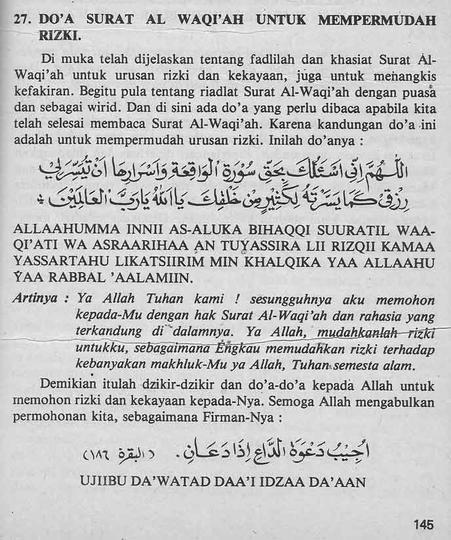 27. DO'A SURAT AL WAQI'AH UNTUK MEMPERMUDAH
RIZKI.
Di muka telah dijelaskan tentang fadlilah dan khasiat Surat Al-
Waqi'ah untuk urusan rizki dan kekayaan, juga untuk menangkis
kefakiran. Begitu pula tentang riadlat Surat Al-Waqi'ah dengan puasa
dan sebagai wirid. Dan di sini ada do'a yang perlu dibaca apabila kita
telah selesai membaca Surat Al-Waqi'ah. Karena kandungan do'a ini
adalah untuk mempermudah urusan rizki. Inilah do'anya :
اَللّٰهُمَّ اِنِّى اَسْئَلُكَ بِحَقِّ سُوْرَةِ الْوَاقِعَةِ وَاَسْرَارِهَا اَنْ تُيَسِّرَلِى
رِزْقِى كَمَا يَسَّرْتَهُ لِكَثِيْرٍ مِنْ خَلْقِكَ يَا اَللهُ يَارَبَّ الْعَالَمِيْنَ
ALLAAHUMMA INNII AS-ALUKA BIHAQQI SUURATIL WAA-
QI'ATI WA ASRAARIHAA AN TUYASSIRA LII RIZQII KAMAA
YASSARTAHU LIKATSIIRIM MIN KHALQIKA YAA ALLAAHU
YAA RABBAL 'AALAMIIN.
Artinya : Ya Allah Tuhan kami ! sesungguhnya aku memohon
kepada-Mu dengan hak Surat Al-Waqi'ah dan rahasia yang
terkandung di dalamnya. Ya Allah, mudahkanlah rizki
untukku, sebagaimana Engkau memudahkan rizki terhadap
kebanyakan makhluk-Mu ya Allah, Tuhan semesta alam.
Demikian itulah dzikir-dzikir dan do'a-do'a kepada Allah untuk
memohon rizki dan kekayaan kepada-Nya. Semoga Allah mengabulkan
permohonan kita, sebagaimana Firman-Nya :
اُجِيْبُ دَعْوَةَ الدَّاعِ اِذَا دَعَانِ. (البقرة ١٨٦)
UJIIBU DA'WATAD DAA'I IDZAA DA'AAN
145